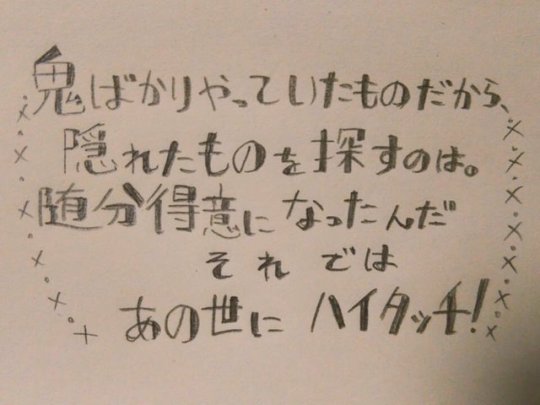 鬼ばかりやっていたものだから、
隠れたものを探すのは。
随分得意になったんだ
それでは
あの世にハイタッチ!